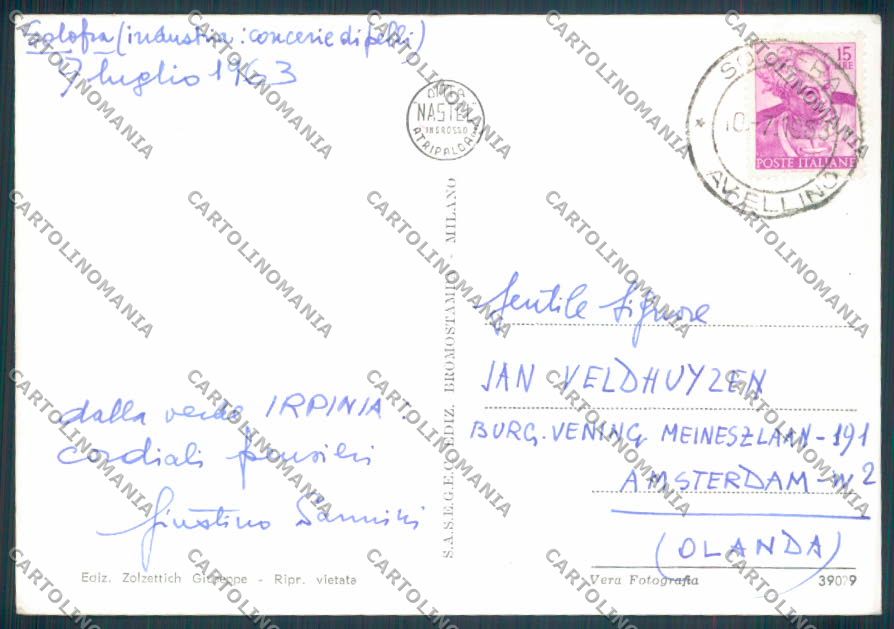 Solofra (industria: concerie di pelli)
7 luglio 1963
DITTA
"NASTEL"
INGROSSO
ATRIPALDA
15
LIRE
POSTE ITALIANE
SOLOFRA
10.-7.1963
* AVELLINO
S.A.S.E.G.E.C. EDIZ. BROMOSTAMPA - MILANO
Gentile Signore
JAN VELDHUYZEN
BURG. VENING MEINESZLAAN - 191
AMSTERDAM - W 2
(OLANDA)
dalla verde IRPINIA:
cordiali pensieri
Giustino
Ediz. Zolzettich Giuseppe - Ripr. vietata
Vera Fotografia
39079
CARTOLINOMANIA